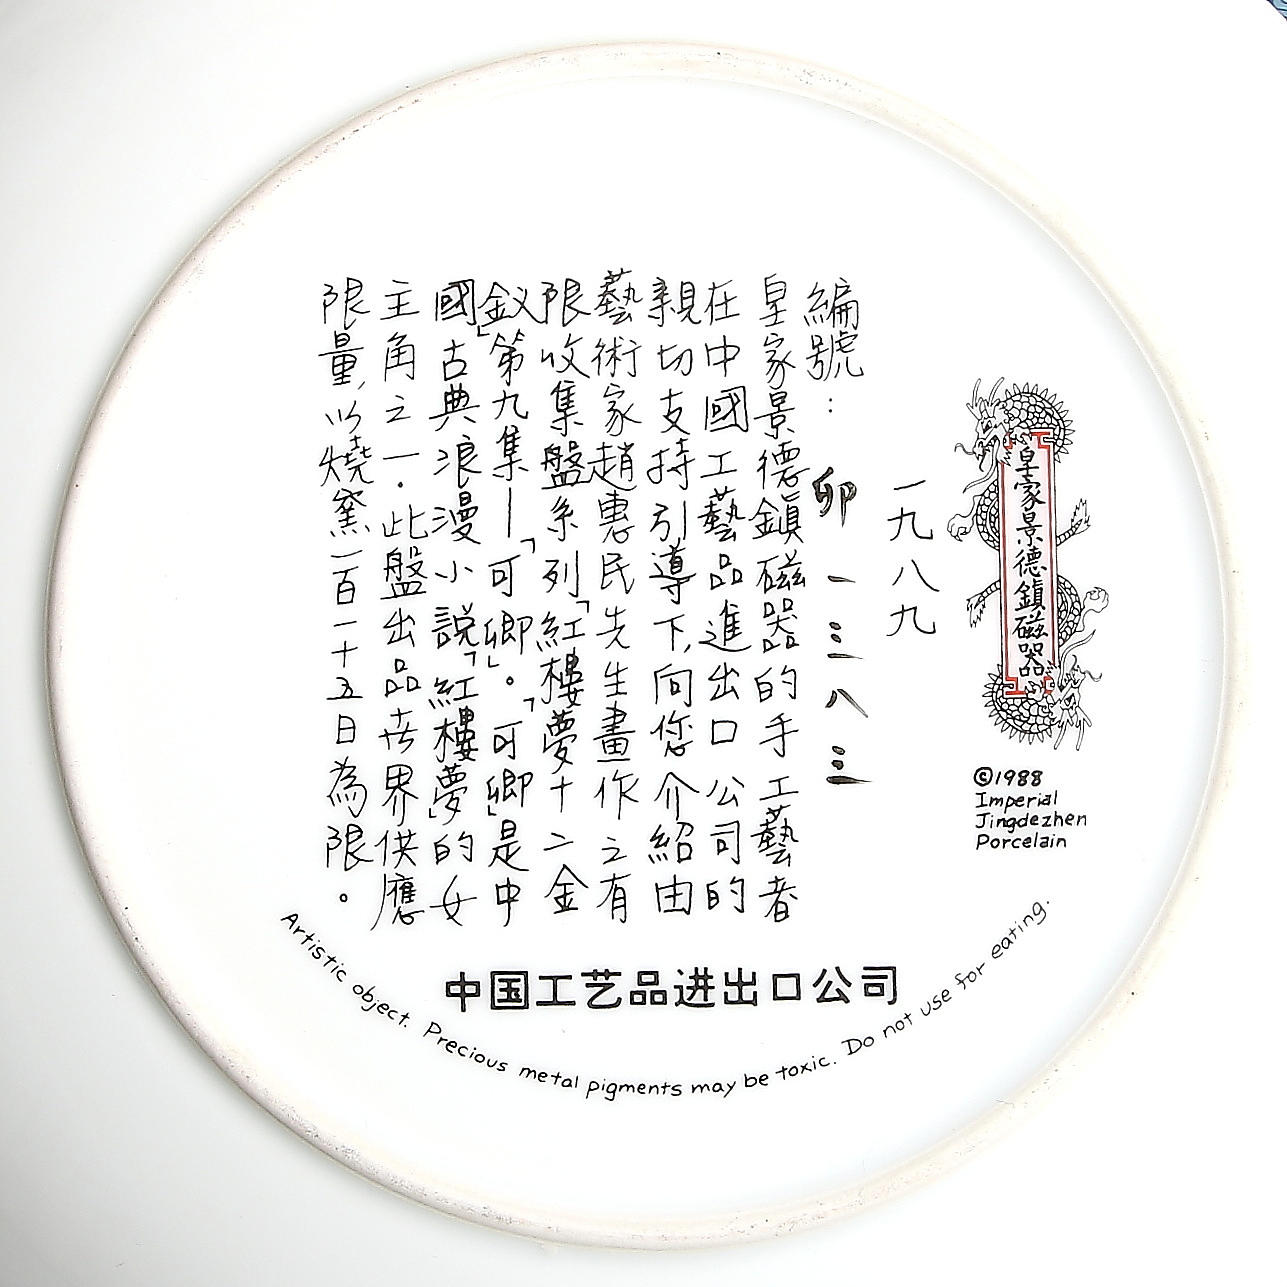 皇家景德鎮磁器
©1988
Imperial
Jingdezhen
Porcelain
一九八九
編號：卯一三八三
皇家景德鎮磁器的手工藝者
在中國工藝品進出口公司的
親切支持引導下，向您介紹由
藝術家趙惠民先生畫作之有
限收集盤系列「紅樓夢十二金
釵」第九集—「可卿」。「可卿」是中
國古典浪漫小說「紅樓夢」的女
主角之一．此盤出品世界供應
限量，以燒窯一百一十五日為限。
中国工艺品进出口公司
Artistic object. Precious metal pigments may be toxic. Do not use for eating.